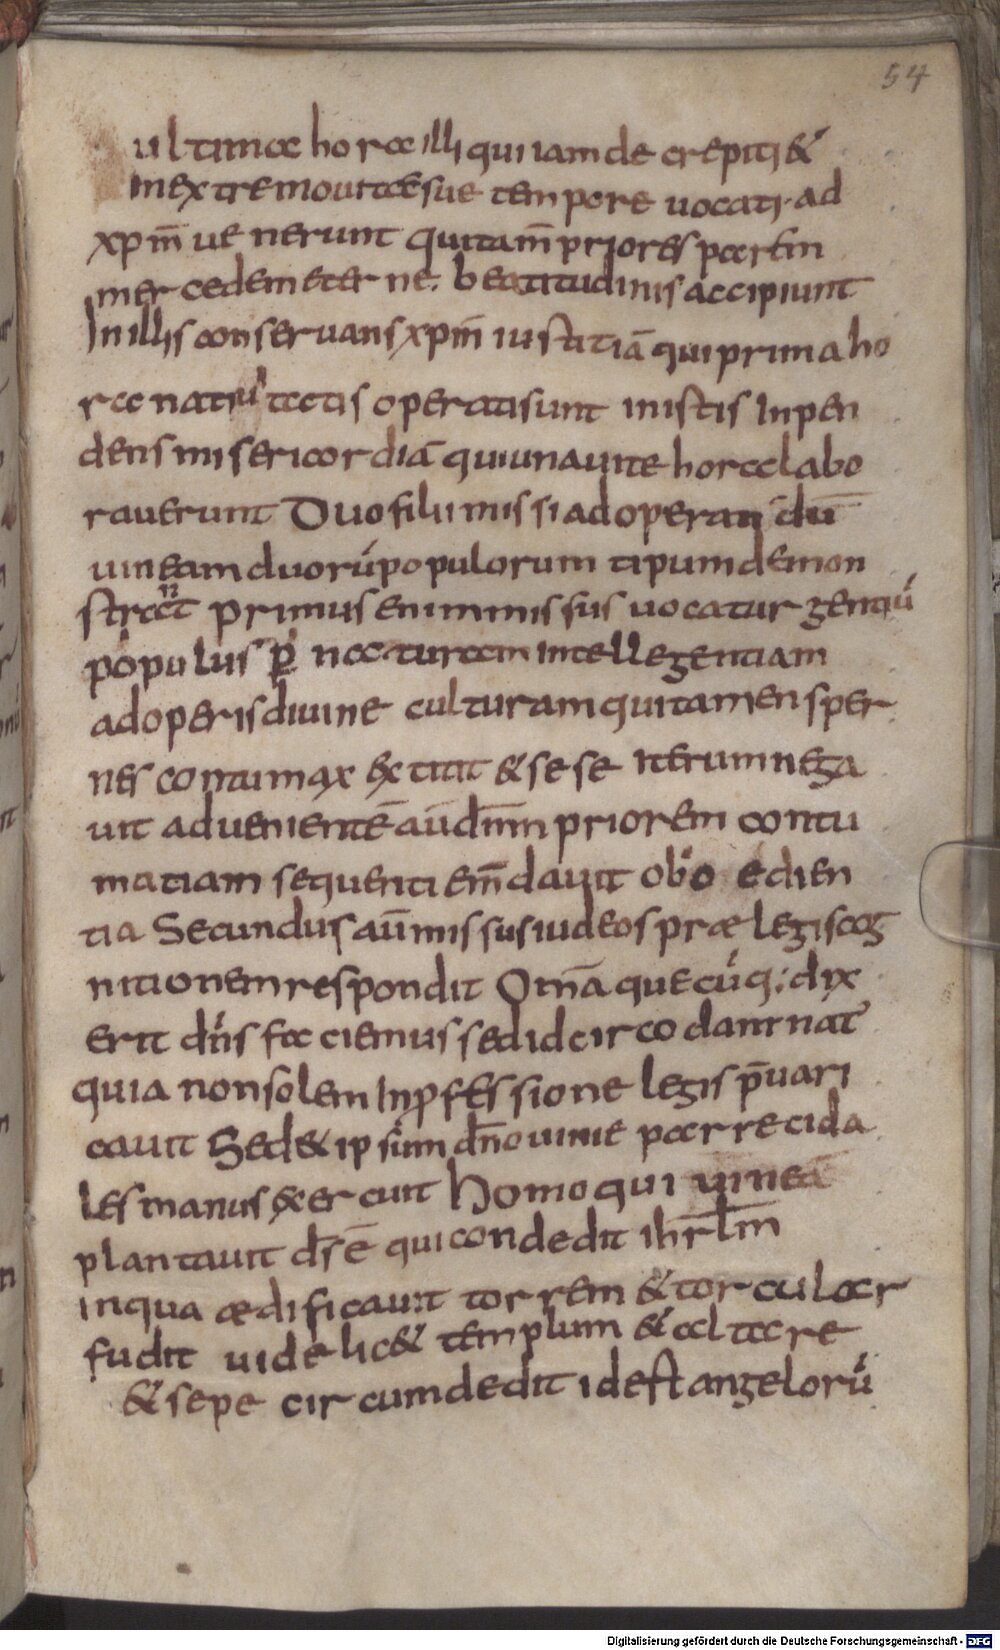 54
ultimae horae illi qui iam decrepiti &
in extremo uitae sue tempore uocati. ad
xpm̄ uenerunt qui tam̄ priores partem
mercedem eterne. beatitudinis accipiunt
In illis conseruans xpm̄ iustitiā qui prima ho
rae natiuitatis operati sunt in istis Inpen
dens misericordiā qui una uite horae labo
rauerunt Duo filii missi ad operandū
uineam duorū populorum tipum demon
strant primus enim missus uocatur gentiū
populus p̱ naturam intellegentiam
ad operis diuine culturam qui tamen sper
nes contumax extitit & sese iterum nega
uit aduenientē aū dnm̄ priorem contu
matiam sequenti em̄dauit oboedien
tia Secundus aū missus iudeos præ legis cog
nitionem respondit Omā quecūq; dix
erit dn̄s faciemus sed idcirco damnat̄
quia non solem In pfessione legis p̄uari
cauit Sed & ipsum dn̄o uinie parrecida
les manus exercuit Homo qui uineā
plantauit ds̄ ē qui condedit ihrl̄m
in qua ædificauit torrem & torcular
fudit uidelic& templum & altare
& sepe circumdedit id est angelorū
Digitalisierung gefördert durch die Deutsche Forschungsgemeinschaft - DFG